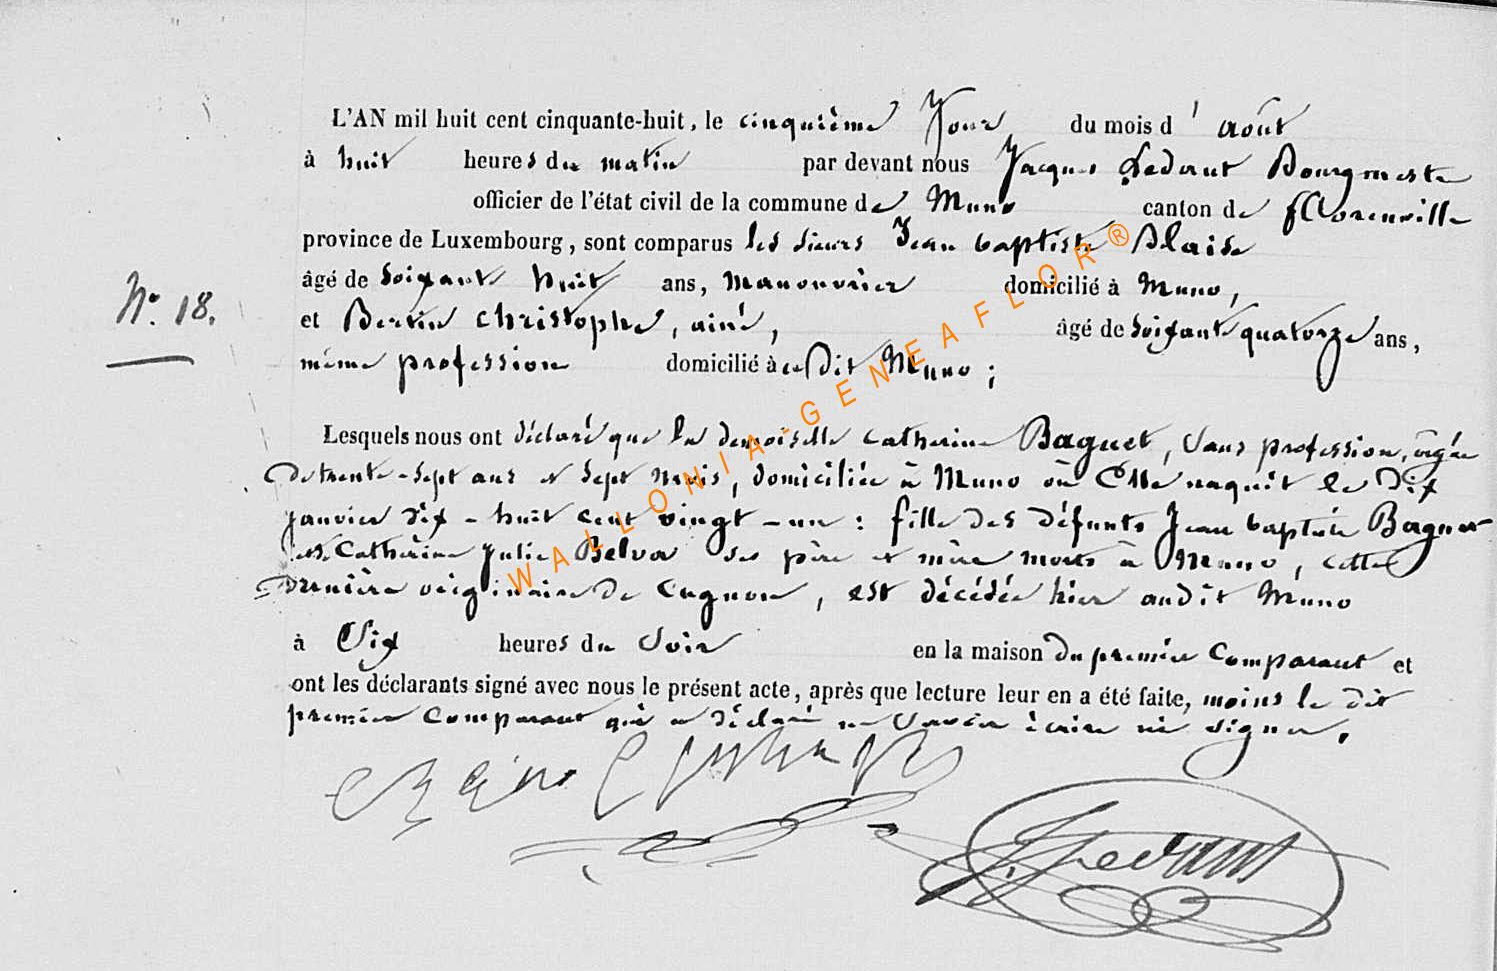 L'AN mil huit cent cinquante-huit, le cinquième Jour du mois d' août
à huit heures du matin par devant nous Jacques Ledant Bourgmestre
officier de l'état civil de la commune de Muno canton de fflorenville
province de Luxembourg, sont comparus les sieurs Jean baptiste Blaise
âgé de Soixante huit ans, Manouvrier domicilié à Muno,
N°. 18.
et Bertin Christophe, ainé, âgé de Soixante quatorze ans,
même profession domicilié à ce Dit Muno ;
Lesquels nous ont déclaré que la demoiselle Catherine Baguet, Sans profession, âgée
De trente-sept ans et Sept Mois, domiciliée à Muno où Elle naquit le Dix
Janvier dix-huit cent vingt-un : fille des défunts Jean baptiste Baguet
et Catherine Julie Belva Ses père et mère morts à Muno, cette
Dernière originaire De Cugnon, est décédée hier audit Muno
à Six heures du Soir en la maison Du premier Comparant et
ont les déclarants signé avec nous le présent acte, après que lecture leur en a été faite, moins le dit
premier Comparant qui a déclaré ne Savoir écrire ni Signer.
JLedant
WALLONIA-GENEAFLOR®